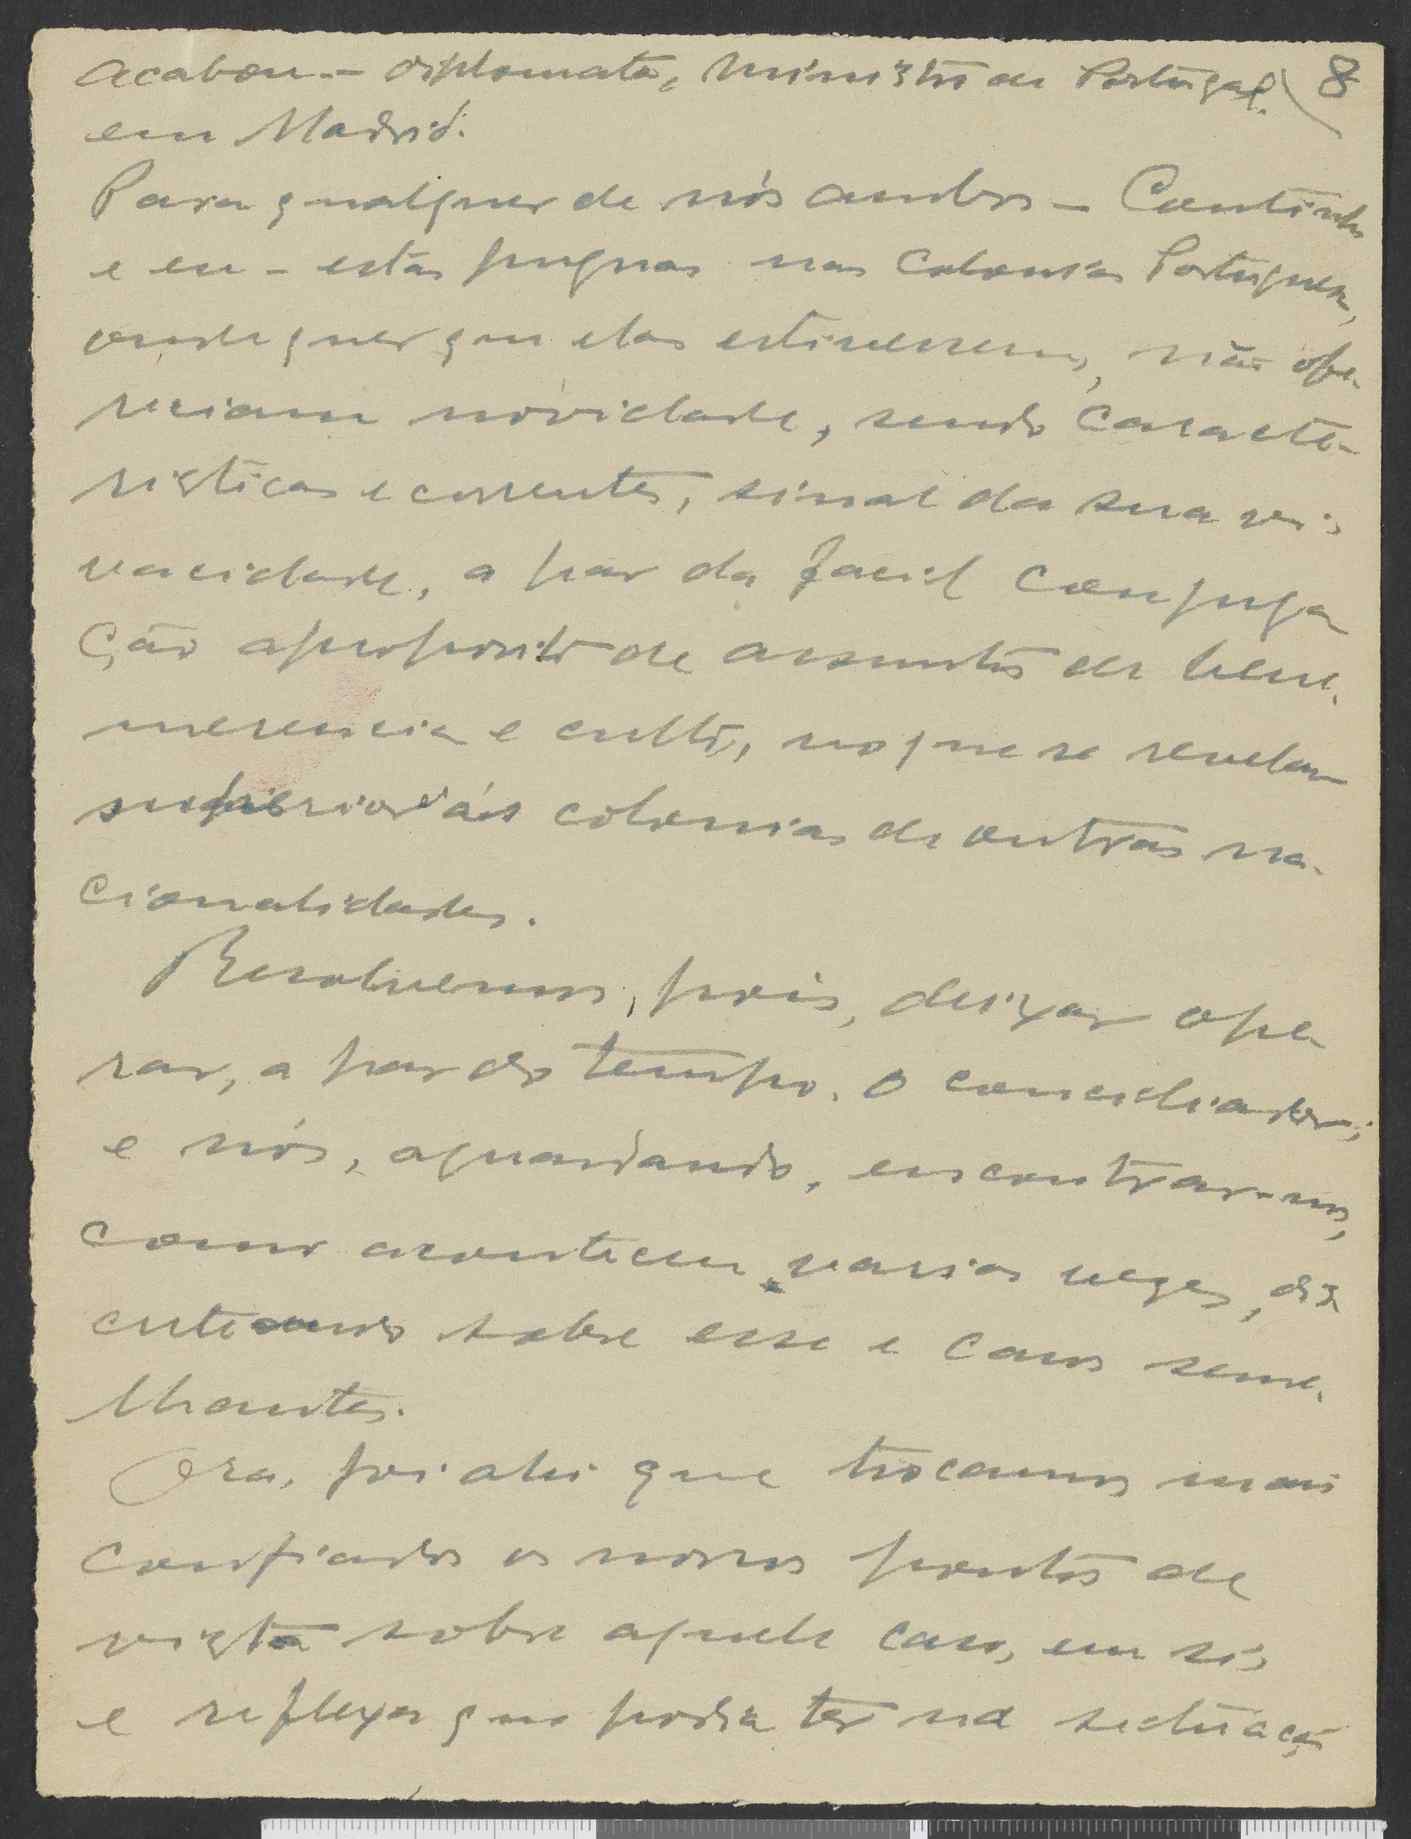 acabou – diplomata, ministro de Portugal. 8
em Madrid.
Para qualquer de nós ambos – Coutinho
e eu – estas pugnas nas Colonias Portuguesas,
onde quer que elas estivessem, não ofe-
reciam novidade, sendo caracte-
risticas e correntes, sinal da sua vi-
vacidade, a par da facil conjuga
ção a proposito de assuntos de bene-
merencia e culto, no que se revelam
superiores ás colonias de outras na-
cionalidades.
Resolvemos, pois, deixar ope-
rar, a par do tempo, o conciliador;
e nós, aguardando, encontrar-nos,
como aconteceu varias vezes, dis
cutindo sobre esse e casos seme-
lhantes.
Ora, foi ahi que trocamos mais
confiados os nossos pontos de
vista sobre aquele caso, em si,
e reflexos que podia ter na situação